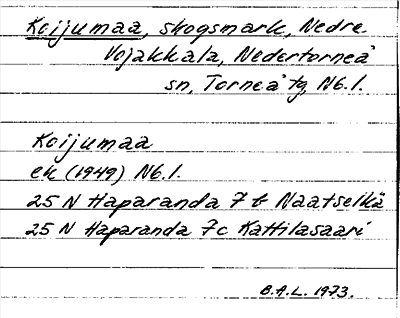 Koijumaa, skogsmark, Nedre
Vojakkala, Nedertorneå
sn, Torneå tg, Nb. l.
Koijumaa
ek (1949) Nb. l.
25 N Haparanda 7 b Naatselkä
25 N Haparanda 7c Kattilasaari
B.A.L. 1973.